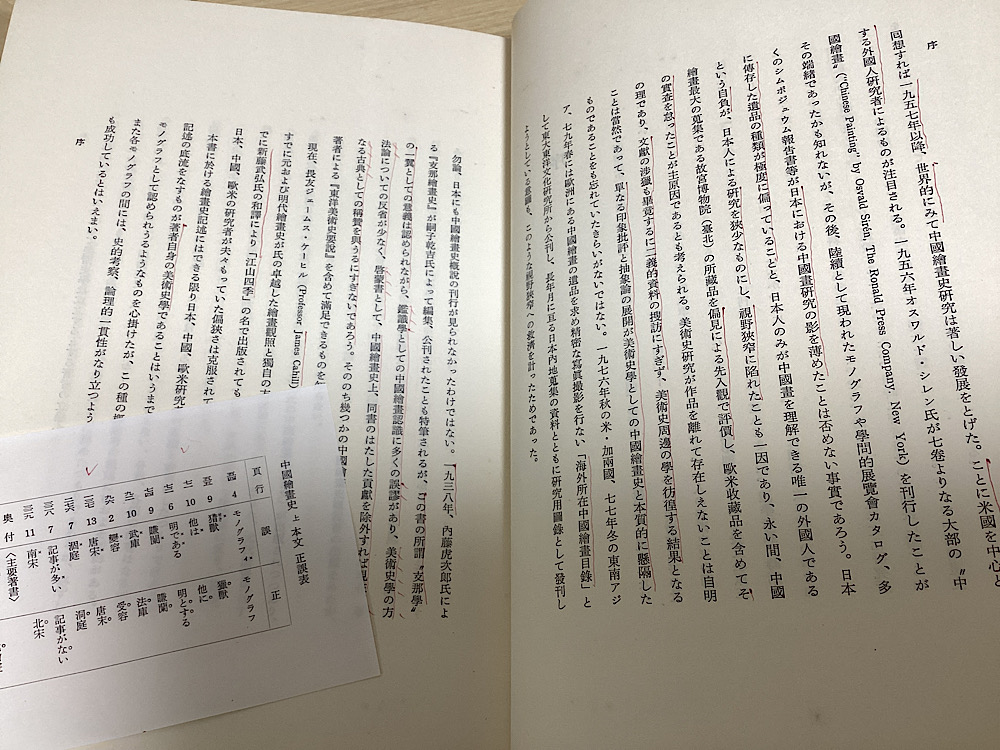 序
囘想すれば一九五七年以降、世界的にみて中國繪畫史研究は著しい發展をとげた。ことに米國を中心
する外國人研究者によるものが注目される。一九五六年オスワルド・シレン氏が七卷よりなる大部の〝中
國繪畫〟("Chinese Painting" by Osvald Sirén, The Ronald Press Company. New York) を刊行したことが
その端緒であったかも知れないが、その後、陸續として現われたモノグラフや學問的展覽會カタログ、多
くのシムポジュウム報告書等が日本における中國畫研究の影を薄めたことは否めない事實であろう。日本
に傳存した遺品の種類が極度に偏っていることと、日本人のみが中國畫を理解できる唯一の外國人である
という自負が、日本人による研究を狹少なものにし、視野狹窄に陷れたことも一因であり、永い間、中國
繪畫最大の蒐集である故宮博物院（臺北）の所藏品を偏見による先入觀で評價し、歐米收藏品を含めてそ
の實査を怠ったことが主原因であるとも考えられる。美術史研究が作品を離れて存在しえないことは自明
の理であり、文獻の涉獵も畢竟するに二義的資料の搜訪にすぎず、美術史周邊の學を彷徨する結果となる
ことは當然であって、單なる印象批評と抽象論の展開が美術史學としての中國繪畫史と本質的に懸隔した
ものであることをも忘れていたきらいがないではない。一九七六年秋の米・加兩國、七七年冬の東南アジ
ア、七九年春には歐洲にある中國繪畫の遺品を求め精密な寫眞撮影を行ない「海外所在中國繪畫目錄」と
して東大東洋文化研究所から公刊し、長年月に亙る日本內地蒐集の資料とともに研究用圖錄として發刊し
ようとしている意圖も、このような視野狹窄への救濟を計ったためであった。
勿論、日本にも中國繪畫史概說の刊行が見られなかったわけではない。一九三八年、內藤虎次郎氏によ
る『支那繪畫史』が嗣子乾吉氏によって編集、公刊されたことも特筆されるが、この書の所謂〝支那學〟
の一貫としての意義は認められながら、鑑識學としての中國繪畫認識に多くの誤謬があり、美術史學の方
法論についての反省が少なく、啓蒙書として、中國繪畫史上、同書のはたした貢獻を除外すれば
なる古典としての稱贊を與うるにすぎないであろう。そののち幾つかの中國繪
著者による『東洋美術史要說』を含めて滿足できるものを
現在、畏友ジェームス・ケーヒル (Professor James Cahill)
すでに元および明代繪畫史が氏の卓越した繪畫觀照と獨自の
でに新藤武弘氏の和譯により「江山四季」の名で出版されても
日本、中國、歐米の研究者が夫々もっていた偏狹さは克服されて
本書に於ける繪畫史記述にはできる限り日本、中國、歐米研究
記述の底流をなすものが著者自身の美術史學であることはいうまで
モノグラフとして認められうるようなものを心掛けたが、この種の
また各モノグラフの間には、史的考察、論理的一貫性がなり立つよう
も成功しているとはいえまい。
序
中國繪畫史 上 本文 正誤表
頁 行 誤 正
4 モグラフィ モノグラフ
9 獵獸
10 他は 他に
6 明である 明とする
9 謙蘭
10 武庫 法庫
2 受容
13 唐宋 唐末
7 澗庭 洞庭
7 記事が多い 記事がない
11 南宋 北宋
奧付 〈主要著書〉